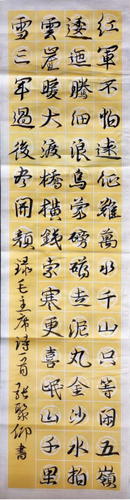 紅軍不怕遠征難萬水千山只等閑五嶺
逶迤騰細浪烏蒙磅礴走泥丸金沙水拍
雲崖暖大渡橋橫鐵索寒更喜岷山千里
雪三軍過後盡開顏 録毛主席詩一首 張聚仰書